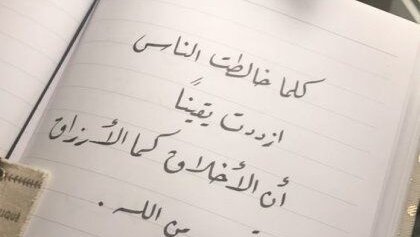 كلما خالطت الناس
ازددت يقينًا
أن الأخلاق كما الأرزاق
من الله .